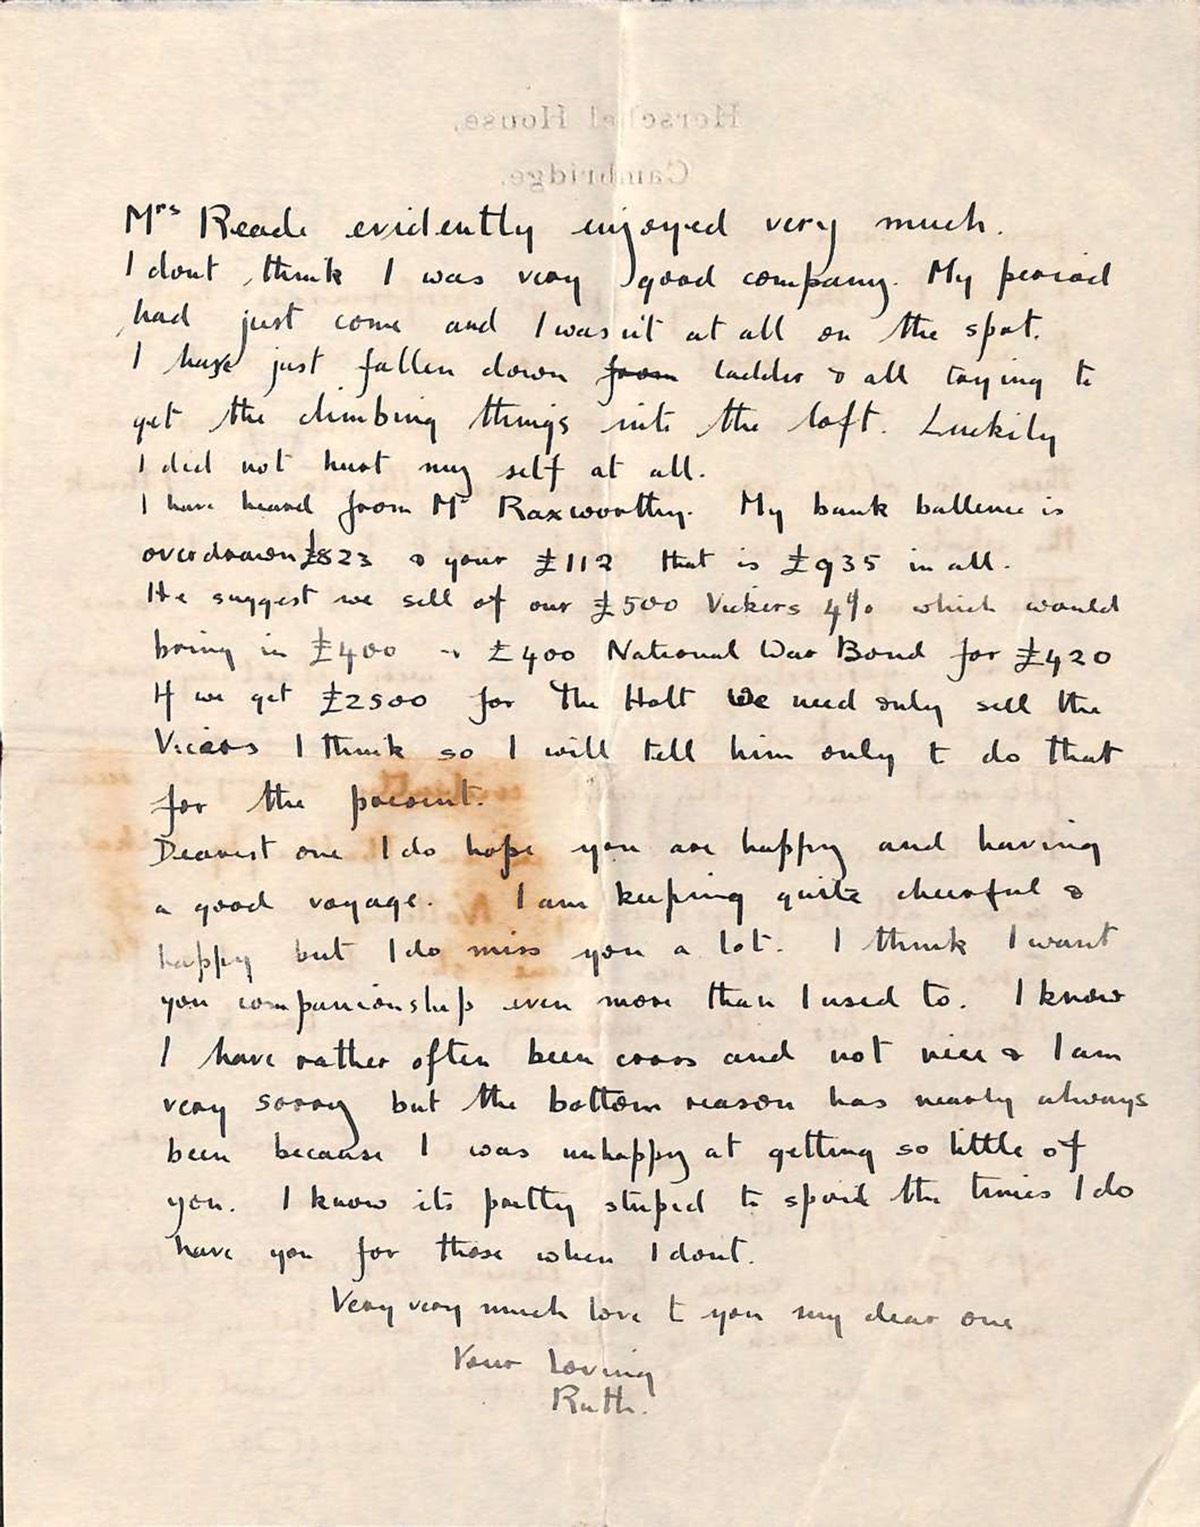 Herschel House,
Cambridge.
Mrs Reade evidently enjoyed very much.
I dont think I was very good company. My period
had just come and I wasn't at all on the spot.
I have just fallen down from ladder & all trying to
get the climbing things into the loft. Luckily
I did not hurt my self at all.
I have heard from Mr Raxworthy. My bank ballence is
overdrawn £823 & your £112 that is £935 in all.
He suggest we sell of our £500 Vickers 4% which would
bring in £400 £400 National War Bond for £420
If we get £2500 for The Holt We need only sell the
Vicars I think so I will tell him only t do that
for the present.
Dearest one I do hope you are happy and having
a good voyage. I am keeping quite cheerful &
happy but I do miss you a lot. I think I want
you companionship even more than I used to. I know
I have rather often been cross and not nice & I am
very sorry but the bottom reason has nearly always
been because I was unhappy at getting so little of
you. I know its pretty stupid to spoil the times I do
have you for those when I dont.
Very very much love t you my dear one
Your loving
Ruth.